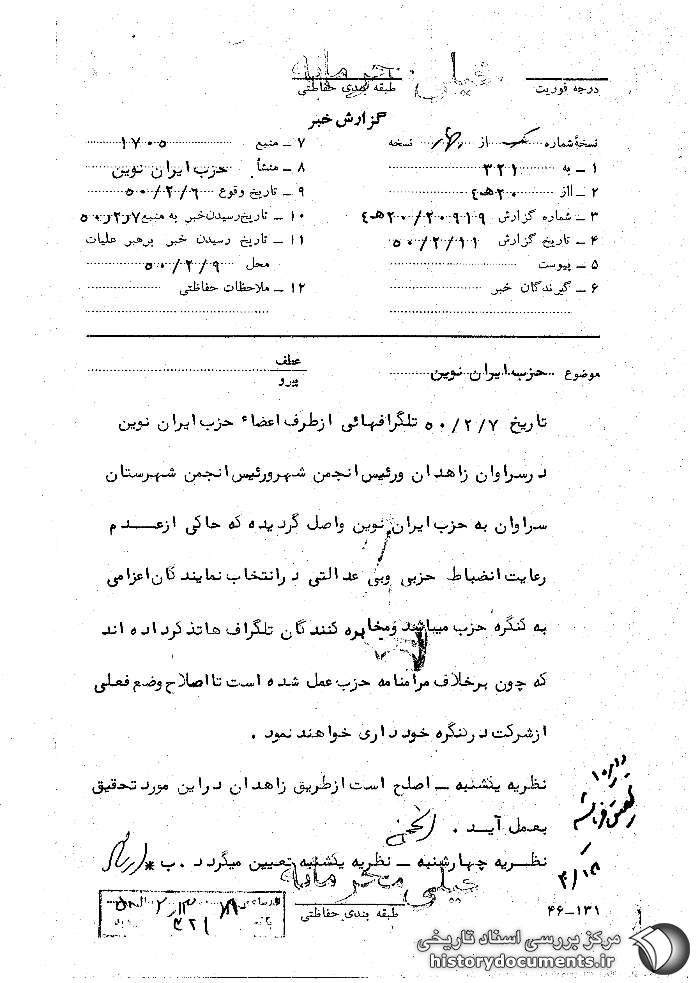 خیلی محرمانه
درجه فوریت
طبقه بندی حفاظتی
گزارش خبر
نسخهٔ شماره یک از چهار نسخه
۱ – به ۳۲۱
۲ – از ۲۰ ه‍ ٤
۳ – شماره گزارش ۲۰۹۱۹ / ۲۰ ه‍ ٤
۴ – تاریخ گزارش ۵۰/۲/۱۱
۵ – پیوست
۶ – گیرندگان خبر
۷ – منبع ۱۷۰۵
۸ – منشأ حزب ایران نوین
۹ – تاریخ وقوع ۵۰/۲/۶
۱۰ – تاریخ رسیدن خبر به منبع ۵۰/۲/۷
۱۱ – تاریخ رسیدن خبر برهبر عملیات
محل ۵۰/۲/۹
۱۲ – ملاحظات حفاظتی
موضوع حزب ایران نوین
عطف
پیرو
تاریخ ۵۰/۲/۷ تلگرافهائی ازطرف اعضاء حزب ایران نوین
درسراوان زاهدان ورئیس انجمن شهرورئیس انجمن شهرستان
سراوان به حزب ایران نوین واصل گردیده که حاکی ازعدم
رعایت انضباط حزبی وبی عدالتی درانتخاب نمایندگان اعزامی
به کنگره حزب میباشد ومخابره کنندگان تلگراف هاتذکرداده اند
که چون برخلاف مرامنامه حزب عمل شده است تااصلاح وضع فعلی
ازشرکت درکنگره خودداری خواهند نمود .
نظریه یکشنبه – اصلح است ازطریق زاهدان دراین مورد تحقیق
بعمل آید .
نظریه چهارشنبه – نظریه یکشنبه تعیین میگردد . ب *
خیلی محرمانه
طبقه بندی حفاظتی
۳۲۱
۴۶-۱۳۱
مرکز بررسی اسناد تاریخی
historydocuments.ir